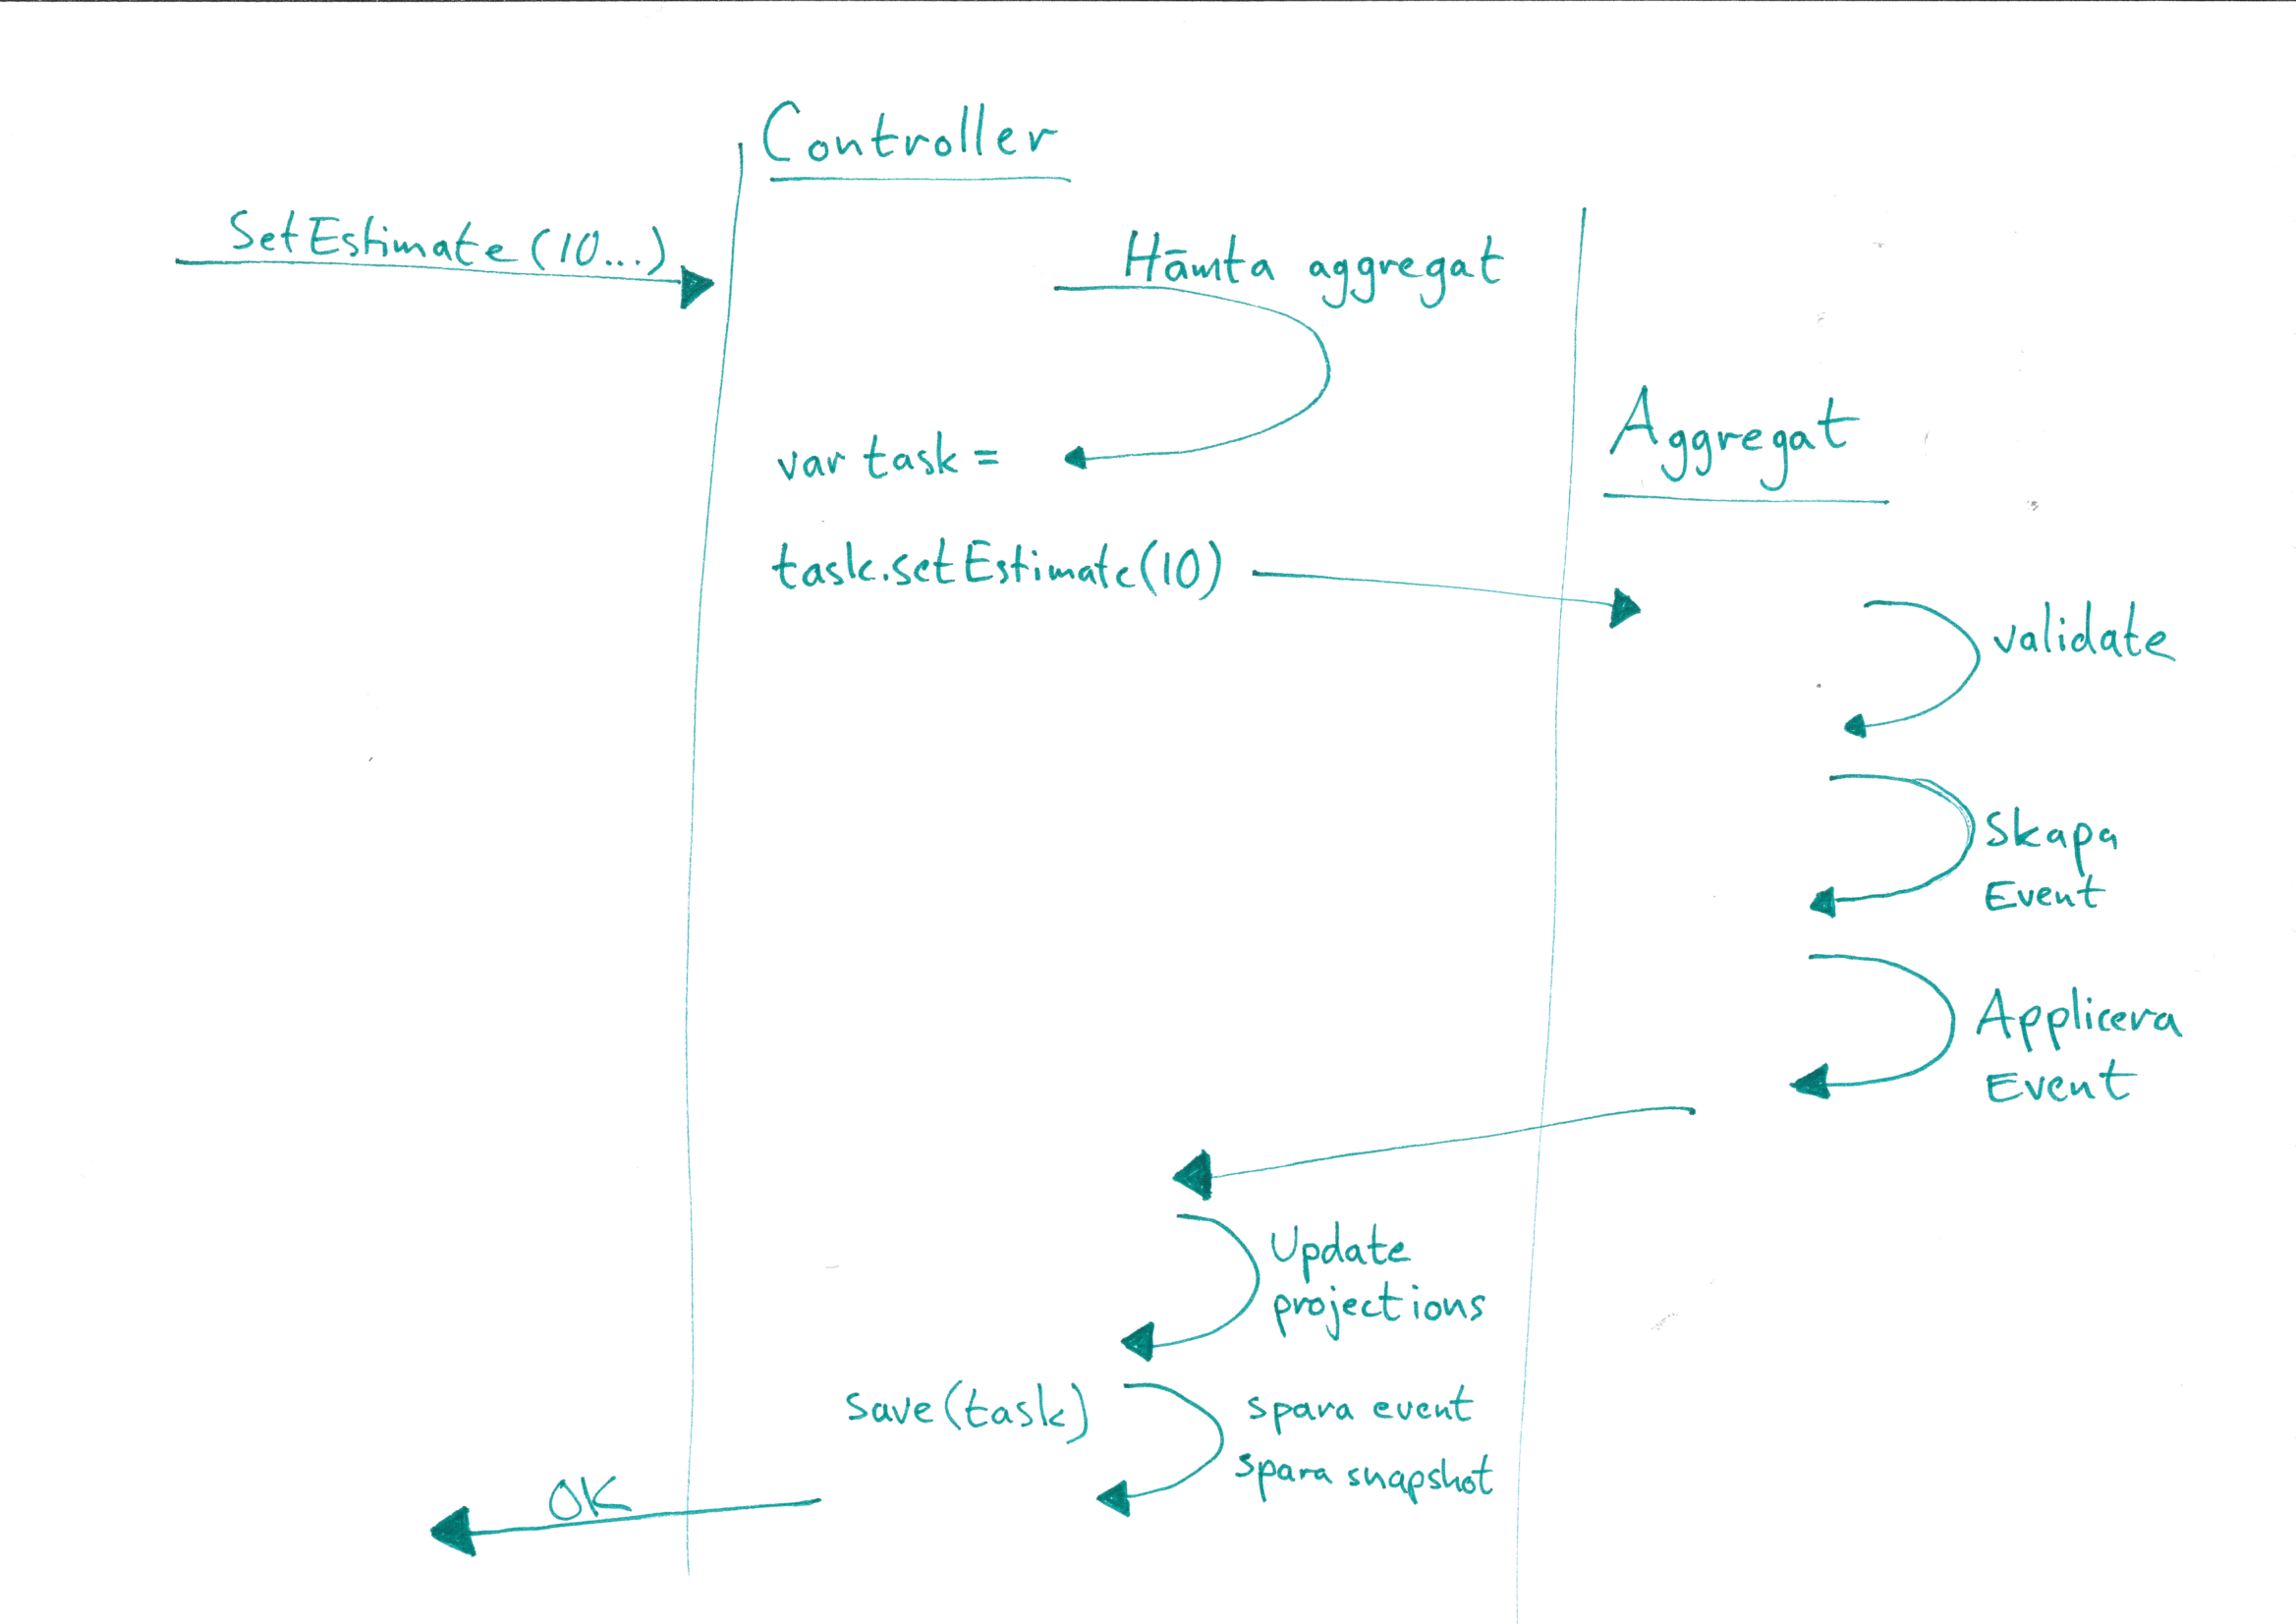 Controller
SetEstimate(10...)
Hämta aggregat
var task =
Aggregat
task.setEstimate(10)
validate
Skapa
Event
Applicera
Event
Update
projections
save(task)
spara event
spara snapshot
OK